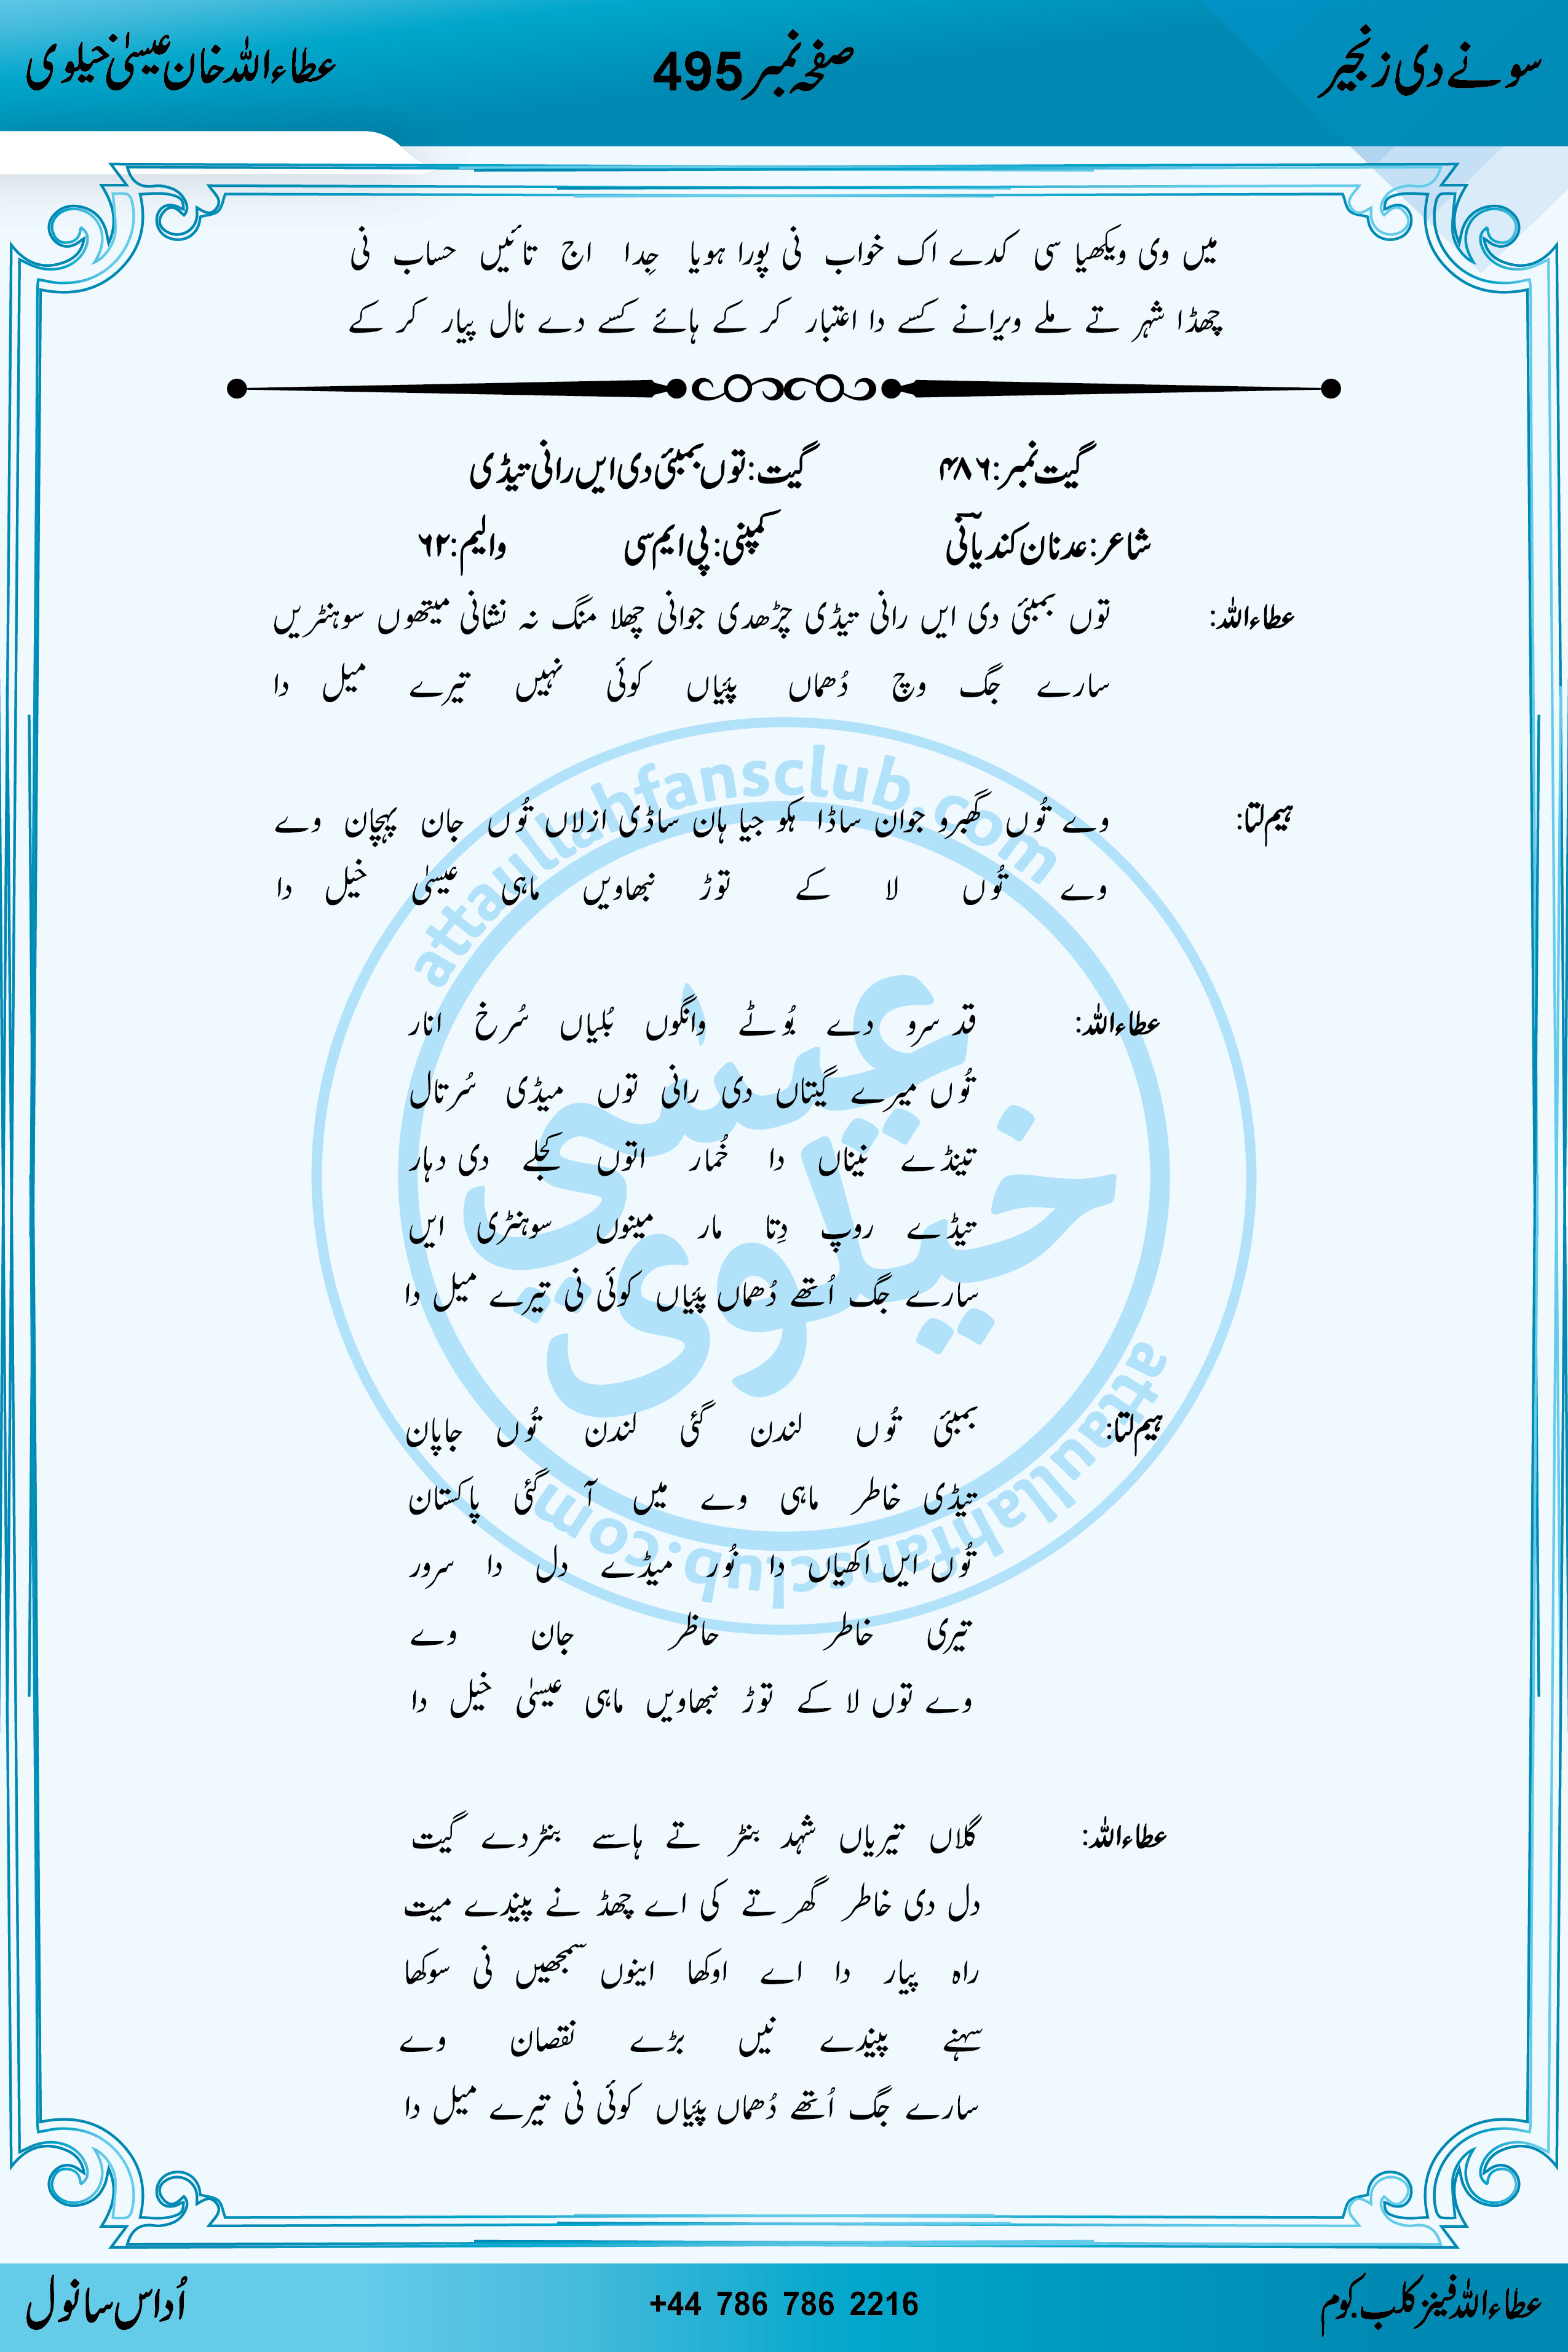 سونے دی زنجیر صفحہ نمبر 495 عطاءاللہ خان عیسیٰ خیلوی
میں وی ویکھیا سی کدے اک خواب نی پورا ہویا جِدا اج تائیں حساب نی
چھڈا شہر تے ملے ویرانے کسے دا اعتبار کر کے ہائے کسے دے نال پیار کر کے
گیت نمبر: ۴۸۶ گیت: توں بمبئی دی ایں رانی تیڈی
شاعر: عدنان کندیانیؔ کمپنی: پی ایم سی والیم: ۶۲
عطاءاللہ: توں بمبئی دی ایں رانی تیڈی چڑھدی جوانی چھلا منگ نہ نشانی میتھوں سوہنٹریں
سارے جگ وچ دُھماں پئیاں کوئی نہیں تیرے میل دا
ہیم لتا: وے تُوں گھبرو جوان ساڈا ہکو جیا ہان ساڈی ازلاں تُوں جان پہچان وے
وے تُوں لا کے توڑ نبھاویں ماہی عیسیٰ خیل دا
عطاءاللہ: قد سرو دے بُوٹے وانگوں بُلیاں سُرخ انار
تُوں میرے گیتاں دی رانی توں میڈی سُرتال
تینڈے نیناں دا خُمار اتوں کجلے دی دہار
تیڈے روپ دِتا مار مینوں سوہنٹری ایں
سارے جگ اُتھے دُھماں پئیاں کوئی نی تیرے میل دا
ہیم لتا: بمبئی تُوں لندن گئی لندن تُوں جاپان
تیڈی خاطر ماہی وے میں آ گئی پاکستان
تُوں ایں اکھیاں دا نُور میڈے دل دا سرور
تیری خاطر حاظر جان وے
وے توں لا کے توڑ نبھاویں ماہی عیسیٰ خیل دا
عطاءاللہ: گلاں تیریاں شہد بنٹر تے ہاسے بنٹردے گیت
دل دی خاطر گھر تے کی اے چھڈ نے پیندے میت
راہ پیار دا اے اوکھا اینوں سمجھیں نی سوکھا
سہنے پیندے نیں بڑے نقصان وے
سارے جگ اُتھے دُھماں پئیاں کوئی نی تیرے میل دا
attaullahfansclub.com
عیسیٰ خیلوی
attaullahfansclub.com
عطاءاللہ فینز کلب.کوم +44 786 786 2216 اُداس سانول